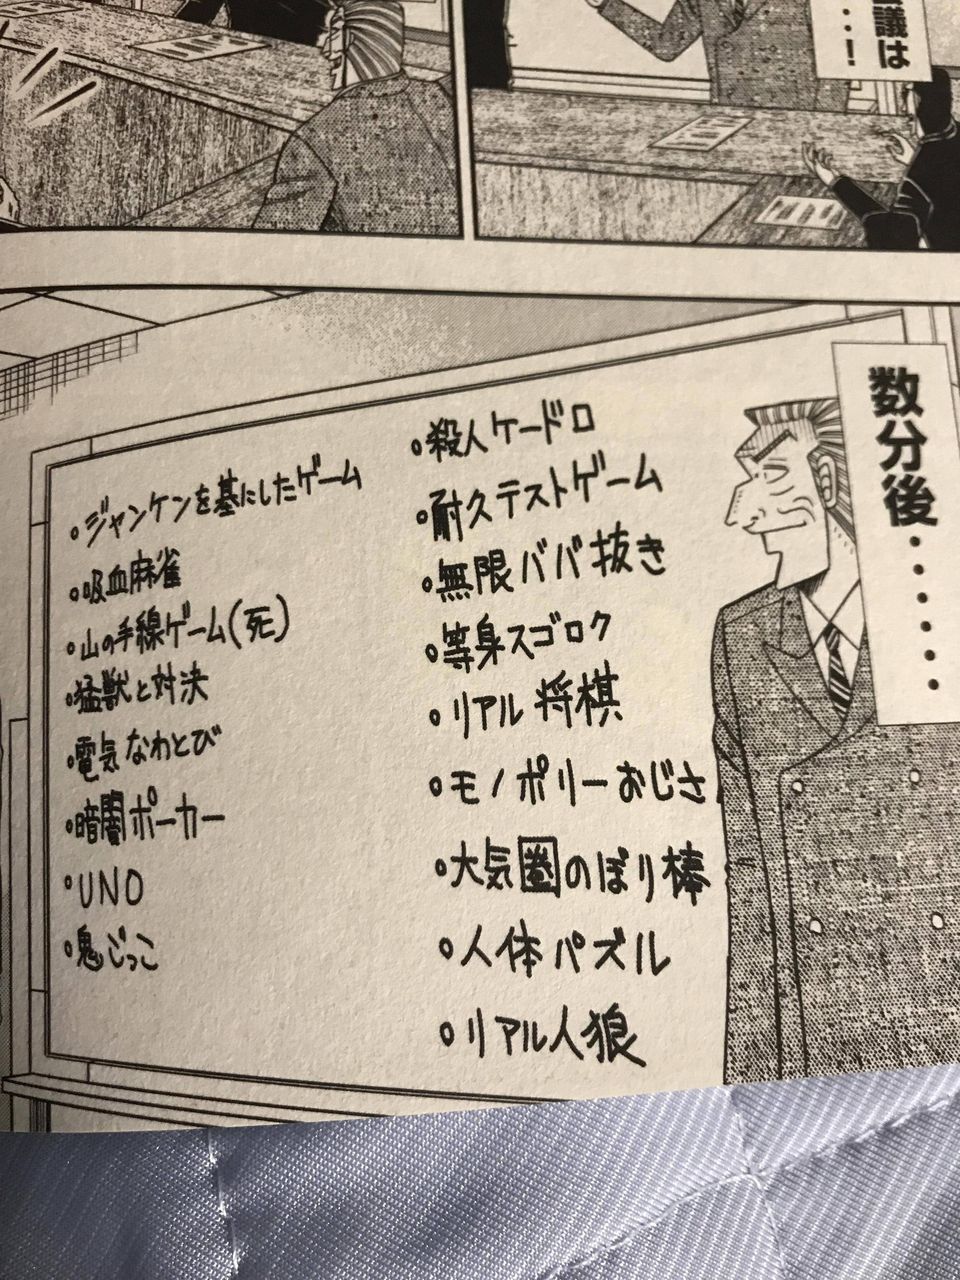 議は
…!
数分後……
・ジャンケンを基にしたゲーム
・吸血麻雀
・山の手線ゲーム(死)
・猛獣と対決
・電気なわとび
・暗闇ポーカー
・UNO
・鬼ごっこ
・殺人ケードロ
・耐久テストゲーム
・無限ババ抜き
・等身スゴロク
・リアル将棋
・モノポリーおじさ
・大気圏のぼり棒
・人体パズル
・リアル人狼